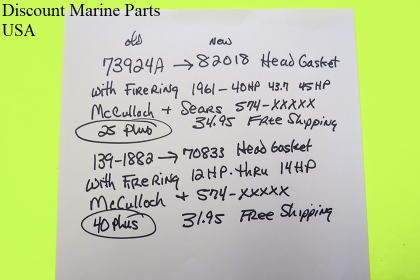 Discount Marine Parts
USA
old new
73924A → 82018 Head Gasket
with Fire Ring 1961 - 40HP 43.7 45HP
McCulloch + Sears 574-XXXXX
25 Plus 34.95 Free Shipping
139-1882 → 70833 Head Gasket
with Fire Ring 12HP. thru 14HP
McCulloch + 574-XXXXX
40 Plus 31.95 Free Shipping